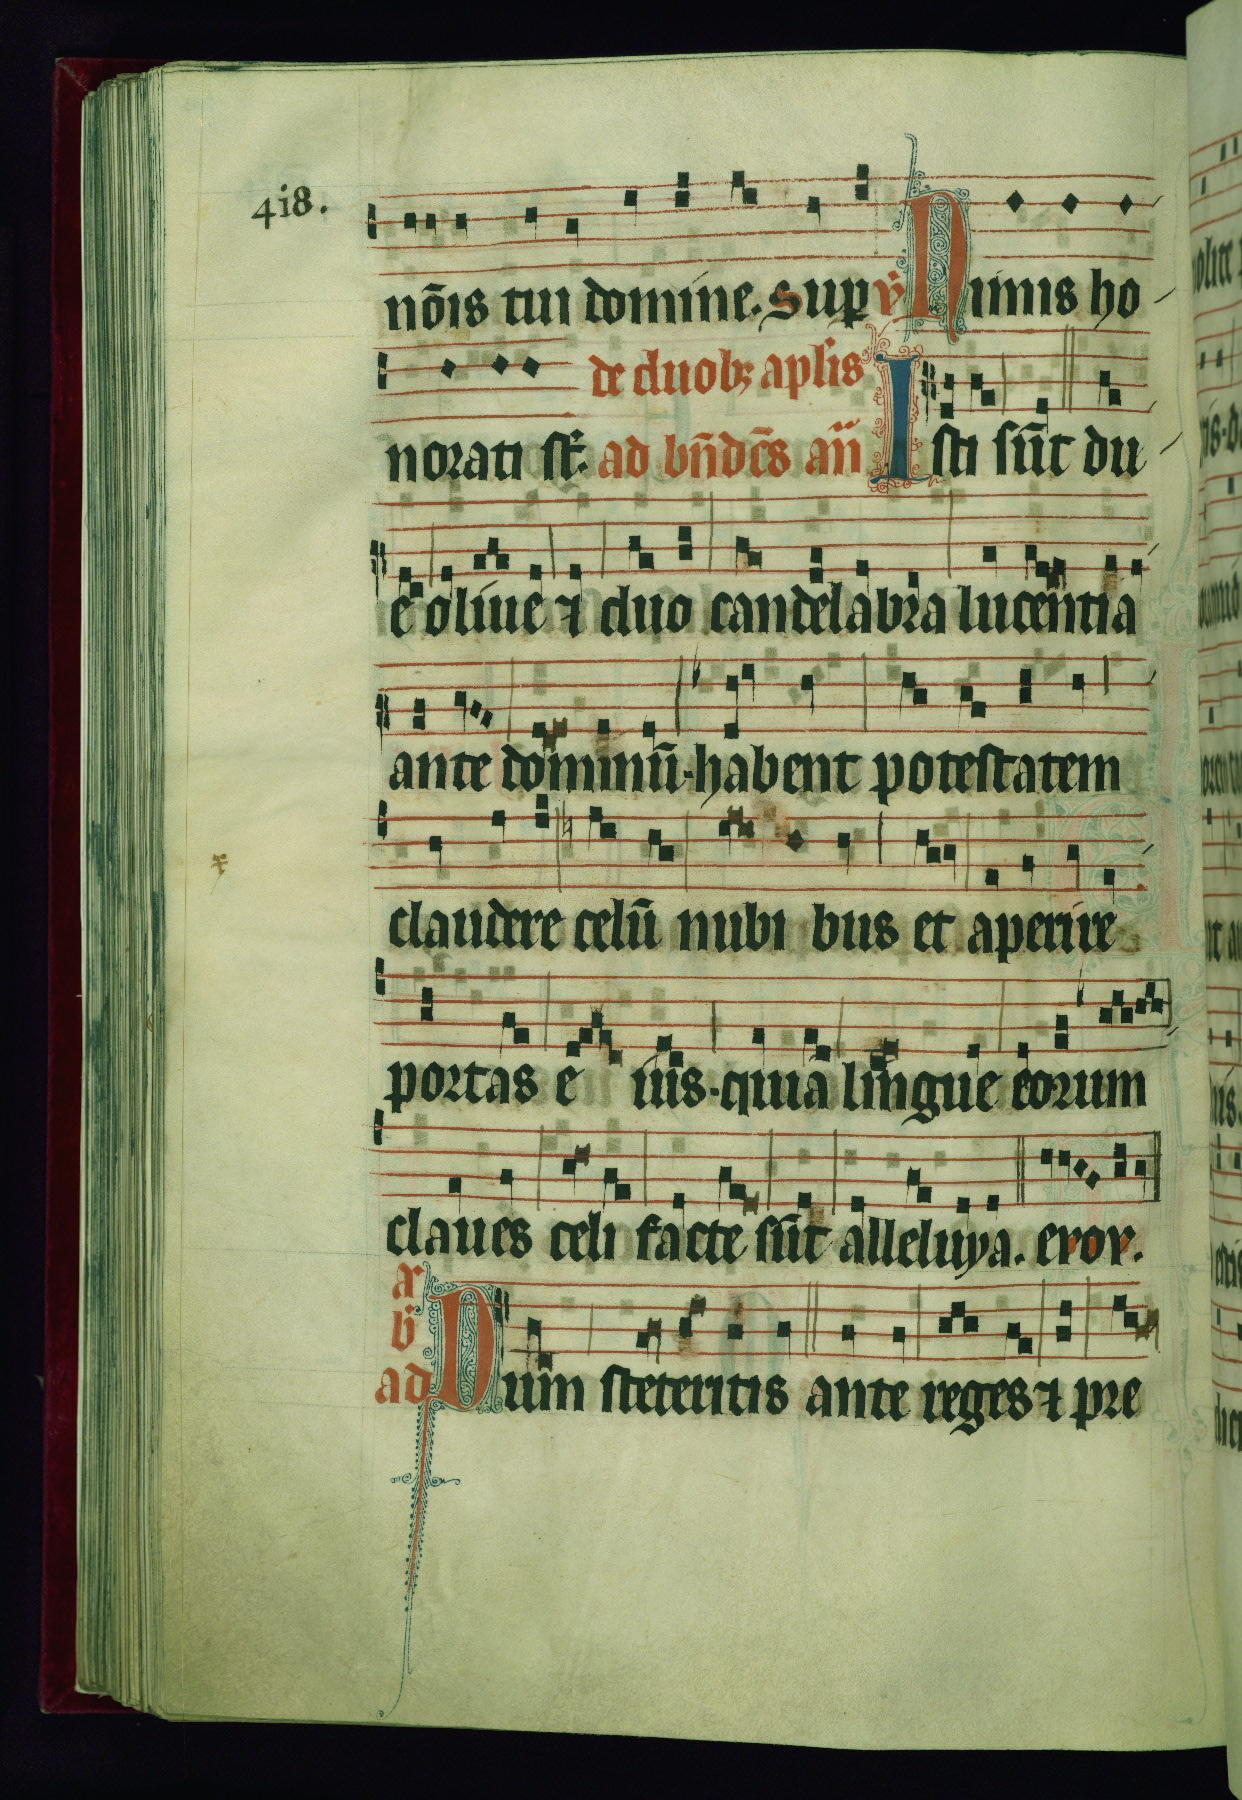 418.
nōis tui domine. Sup v̄ Nimis ho
de duobꝫ apl̄is
norati st̄. ad bn̄dc̄s añ Isti sūt du
e oliue ⁊ duo candelabra lucentia
ante dominū. habent potestatem
claudere celū nubi bus et aperire
portas e ius. quia lingue eorum
claues celi facte sūt alleluya. evov.
ar
b
ad Dum steteritis ante reges ⁊ pre